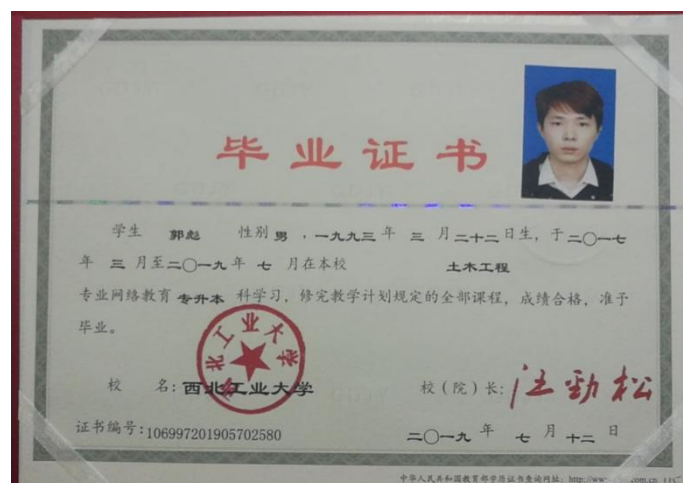 毕业证书
学生 郭彪 性别 男 ,一九九三 年 三 月 二十二 日生, 于 二〇一七
年 三 月至 二〇一九 年 七 月在本校 土木工程
专业网络教育 专升本 科学习, 修完教学计划规定的全部课程, 成绩合格, 准予
毕业。
西北工业大学
校 名: 西北工业大学
校(院)长: 汪劲松
证书编号: 106997201905702580
二〇一九 年 七 月 十二 日
中华人民共和国教育部学历证书查询网址: http://www